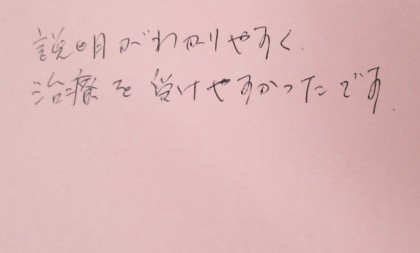 説明がわかりやすく.
治療を受けやすかったです.